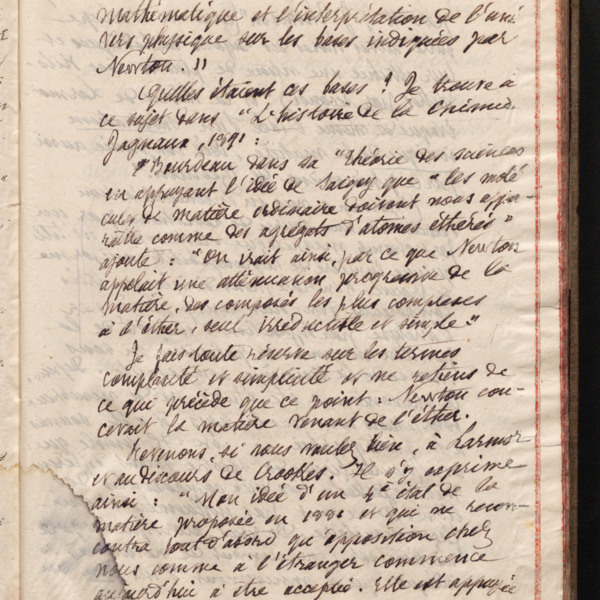 mathématique et l'interprétation de l'uni
vers physique sur les bases indiquées par
Newton."
Quelles étaient ces bases ? Je trouve à
ce sujet dans "L'histoire de la Chimie
Jagnaux, 1891 :
"Bourdeau dans sa "Théorie des sciences
en appuyant l'idée de Saigey que "les molé
cules de matière ordinaire doivent nous appa-
raître comme des agrégats d'atomes éthérés"
ajoute : "On irait ainsi, par ce que Newton
appelait une atténuation progressive de la
matière, des composés les plus complexes
à l'éther, seul irréductible et simple."
Je fais toute réserve sur les termes
complexité et simplicité et ne retiens de
ce qui précède que ce point : Newton con-
cevait la matière venant de l'éther.
Revenons, si vous voulez bien, à Larmor
et au discours de Crookes. Il s'y exprime
ainsi : "Mon idée d'un 4e état de la
matière proposée en 1881 et qui ne rencon-
contra tout d'abord qu'opposition chez
nous comme à l'étranger commence
aujourd'hui à être acceptée. Elle est appuyée